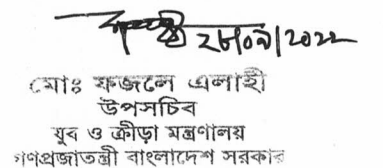 ২৮/০৯/২০২২
মোঃ ফজলে এলাহী
উপসচিব
যুব ও ক্রীড়া মন্ত্রণালয়
গণপ্রজাতন্ত্রী বাংলাদেশ সরকার